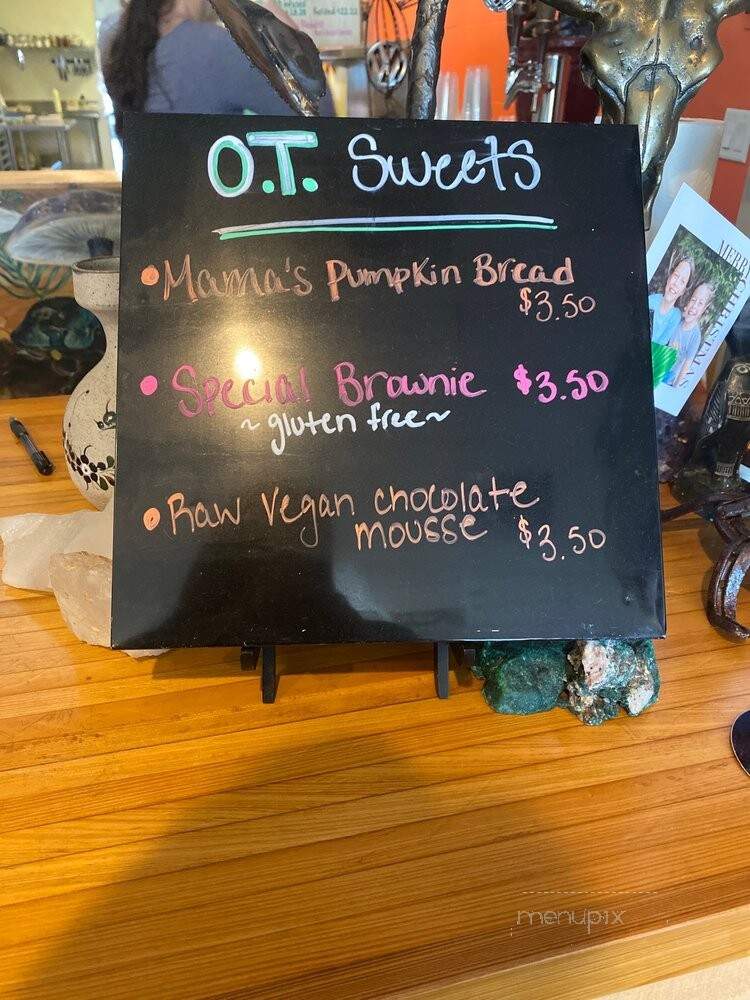 O.T. Sweets
• Mama's Pumpkin Bread
$3.50
• Special Brownie $3.50
~gluten free~
• Raw Vegan chocolate
mousse $3.50
menupix